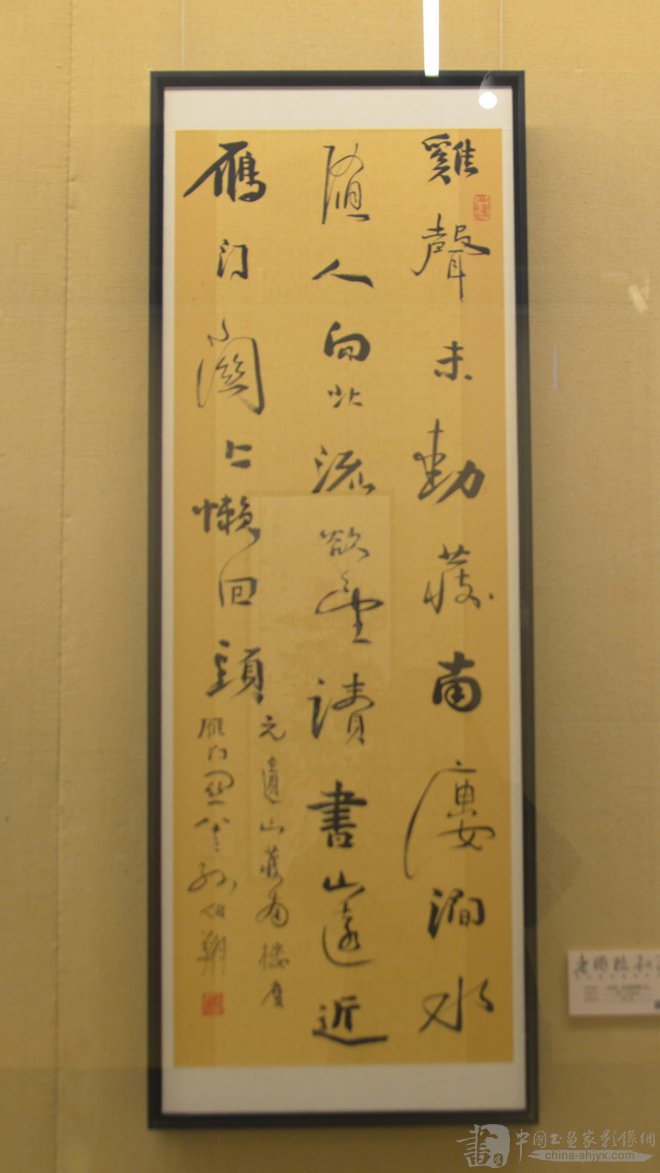 雞聲未動發南廔澗水
隨人向北流欲望讀書山遠近
鴈門關上懶回頭
元遺山發南樓度
雁門關孫伯翔
中国书画家影像網
china-shjyx.com